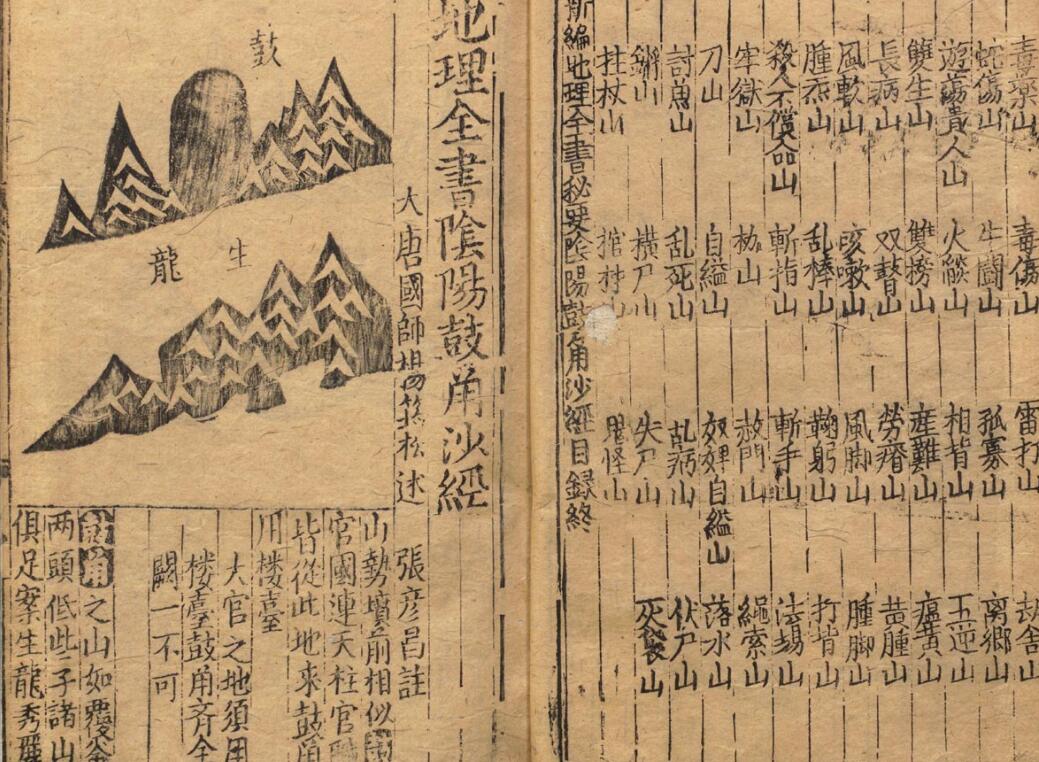 毒藥山 毒傷山 雷打山 劫舍山
蛇傷山 牛鬪山 孤寡山 离鄉山
遊蕩貴人山 火燄山 相背山 五逆山
雙生山 雙撈山 産難山 瘟黄山
長病山 双瞽山 勞瘠山 黄腫山
風軟山 咳嗽山 風脚山 腫脚山
腫山 乱棒山 鞠躬山 打背山
殺人不償命山 斬指山 斬手山 法塲山
牢獄山 枷山 山 繩索山
刀山 自縊山 奴婢自縊山 落水山
山 乱死山 乱病山 伏尸山
山 横尸山 失尸山 灰袋山
拄杖山 棺材山 鬼怪山
新編地理全書秘要陰陽鼓角沙經目録終
地理全書陰陽鼓角沙經
大唐國師楊筠松述
張彦昌註
鼓
生
龍
山勢墳前相似
官國連天柱官
皆從此地来鼓角
用楼臺
大官之地須用
楼臺鼓角齊全
闕一不可
鼓角之山如覆釜
两頭低些子諸山
俱足案生龍秀麗